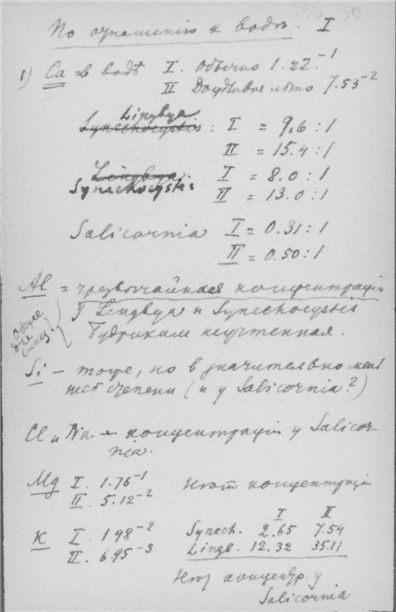 По отношению к водѣ. I
1) Ca въ водѣ I. Обычно 1.22⁻¹
II 7.53⁻²
Lingbya
Synechocystis : I = 9.6 : 1
II = 15.4 : 1
Lingbya : I = 8.0 : 1
Synechocystis II = 13.0 : 1
Salicornia I = 0.31 : 1
II = 0.50 : 1
Al = чрезвычайная концентрация
Lingbya и Synechocystis
неучтенная.
Si – тоже, но в значительно мень
шей степени (и у Salicornia?)
Cl и Na – концентрация у Salicor-
nia.
Mg I. 1.76⁻¹ концентрации
II. 5.12⁻²
I II
K I. 1.98⁻² Synech. 2.65 7.54
II. 6.95⁻³ Lingb. 12.32 35.11
концентр. у
Salicornia